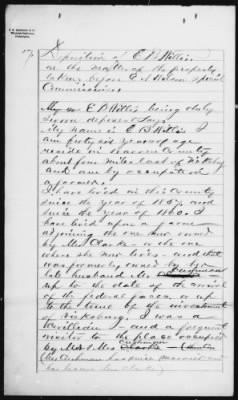 Deposition of E B Willis
in the matter of the property
taken before E A Nelson Special
Commissioner
My E B Willis being duly
sworn deposes & says
My name is E B Willis I
am forty six years of age
reside in Warren County
about four miles East of Vicksburg
and am by occupation
a farmer
I have lived in this County
since the year of 1847 and
since the year of 1860 I
have lived upon a farm
adjoining the one now owned
by Mrs Clarke or the one
where she now lives and that
was formerly owned by her
late husband Mr Cushman
up to the date of the arrival
of the federal forces or up
to the time of the investment
of Vicksburg I was a
Civilian and a frequent
visitor to the place occupied
by Mr & Mrs Cushman
Mrs Cushman has since married and
has become Mrs Clarke